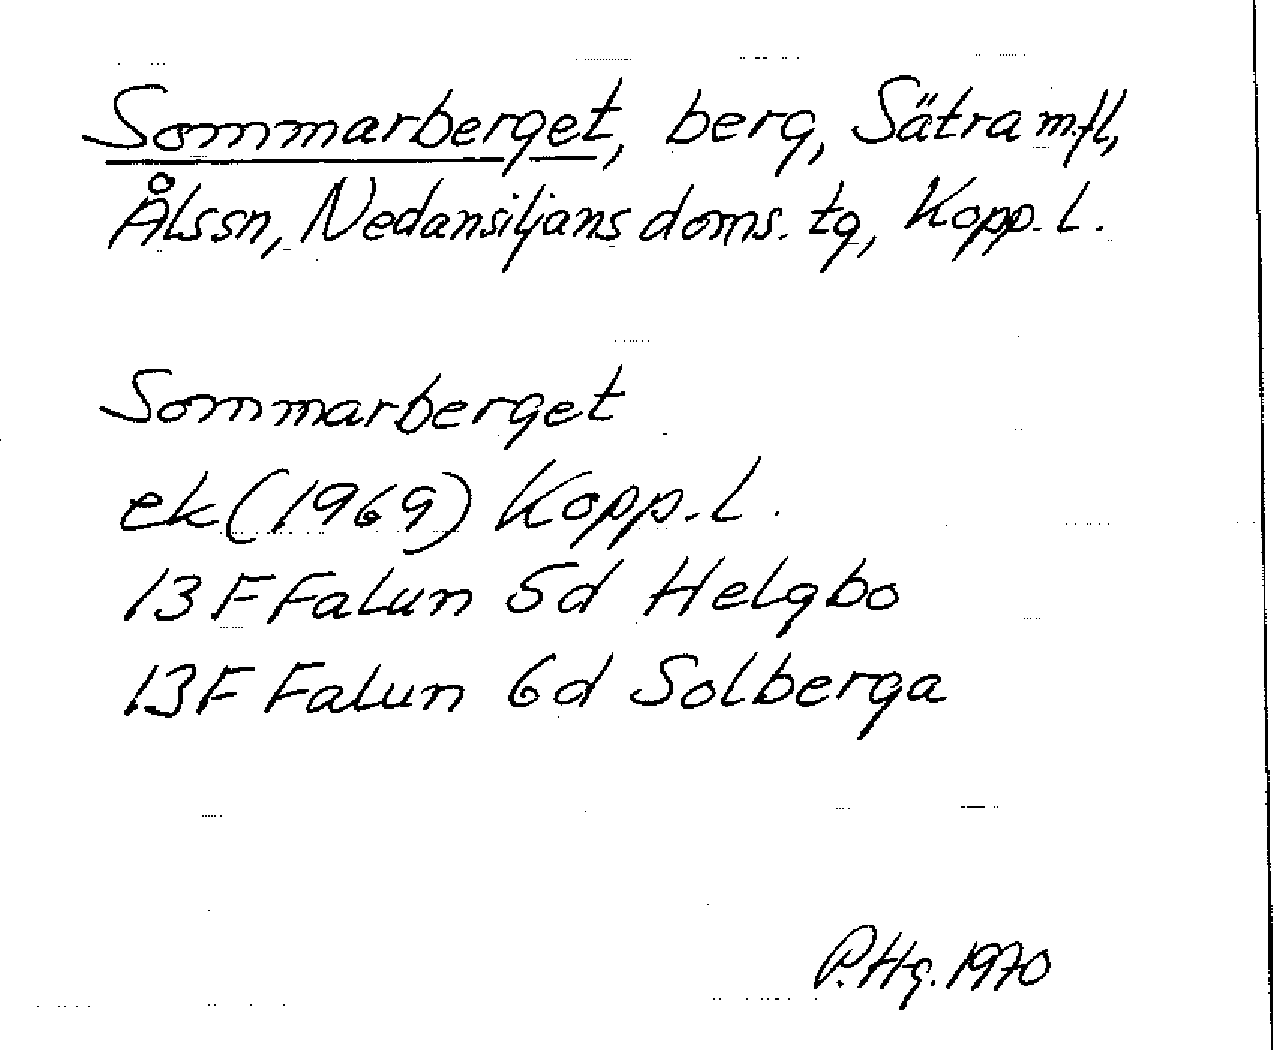 Sommarberget, berg, Sätra m.fl.,
Ålssn, Nedansiljans doms. tg, Kopp. l.
Sommarberget
ek (1969) Kopp. l.
13 F Falun 5d Helgbo
13 F Falun 6d Solberga
P. Hg. 1970